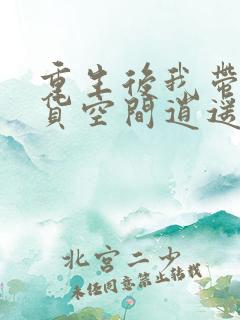 重生後我帶
貨空間逍遙
北宮二少
未經同意禁止轉載